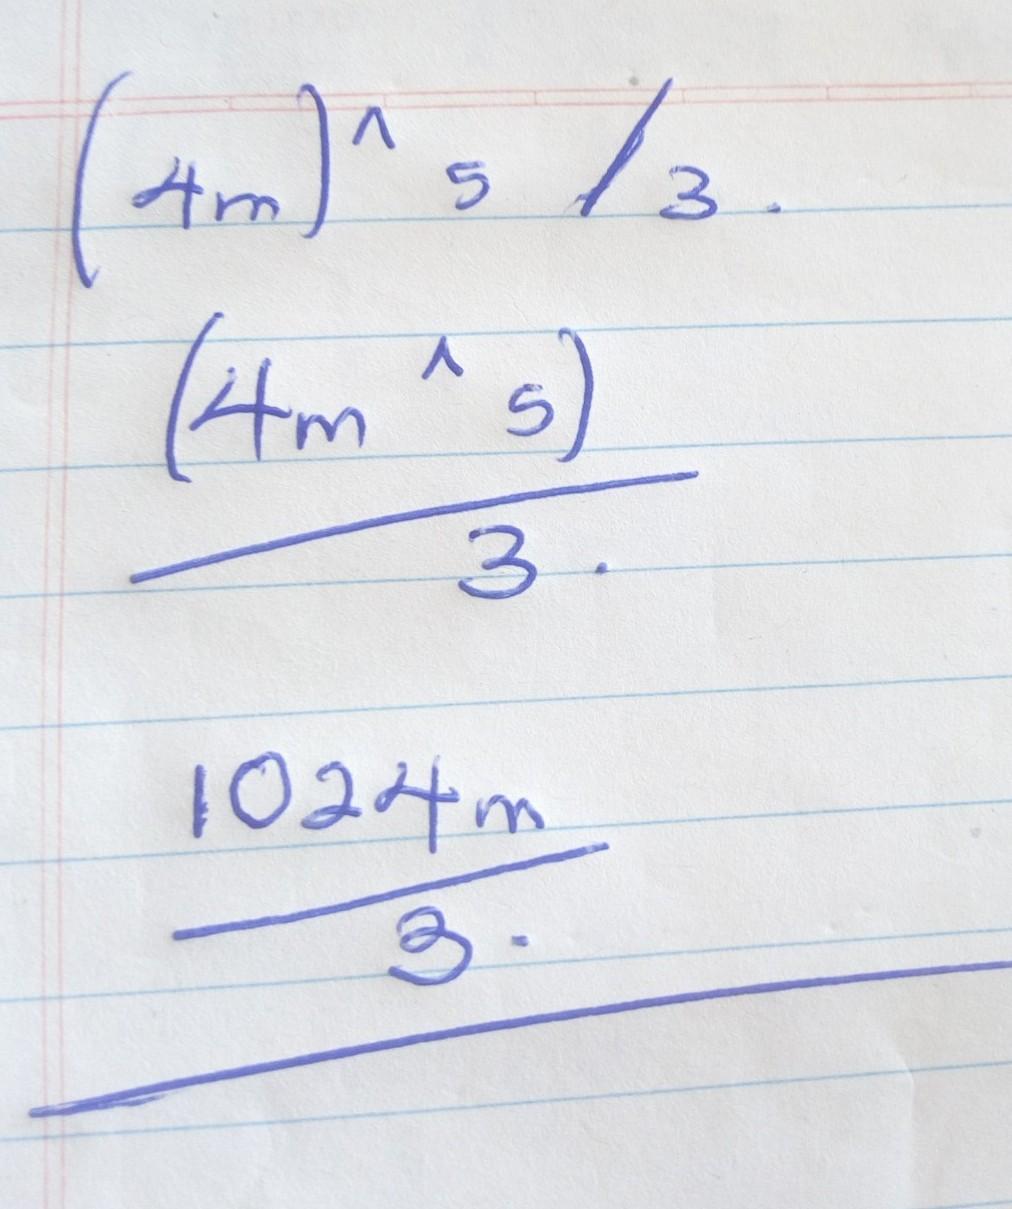 (4m)^5/3.
(4m^5)
3.
1024m
3.